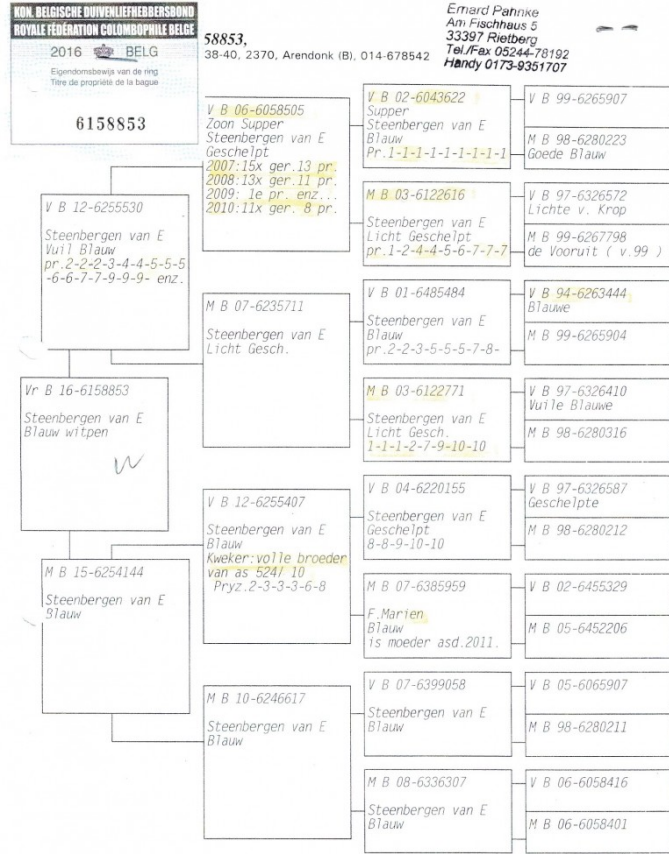 KON. BELGISCHE DUIVENLIEFHEBBERSBOND
ROYALE FÉDÉRATION COLOMBOPHILE BELGE
2016 BELG
Eigendomsbewijs van de ring
Titre de propriété de la bague
6158853
58853,
38-40, 2370, Arendonk (B), 014-678542
Emard Pahnke
Am Fischhaus 5
33397 Rietberg
Tel./Fax 05244-78192
Handy 0173-9351707
Vr B 16-6158853
Steenbergen van E
Blauw witpen
V B 12-6255530
Steenbergen van E
Vuil Blauw
pr.2-2-2-3-4-4-5-5-5
-6-6-7-7-9-9-9- enz.
M B 15-6254144
Steenbergen van E
Blauw
V B 06-6058505
Zoon Supper
Steenbergen van E
Geschelpt
2007:15x ger.13 pr.
2008:13x ger.11 pr.
2009: 1e pr. enz...
2010:11x ger. 8 pr.
M B 07-6235711
Steenbergen van E
Licht Gesch.
V B 12-6255407
Steenbergen van E
Blauw
Kweker:volle broeder
van as 524/ 10
Pryz.2-3-3-3-6-8
M B 10-6246617
Steenbergen van E
Blauw
V B 02-6043622
Supper
Steenbergen van E
Blauw
Pr.1-1-1-1-1-1-1-1-1
M B 03-6122616
Steenbergen van E
Licht Geschelpt
pr.1-2-4-4-5-6-7-7-7
V B 01-6485484
Steenbergen van E
Blauw
pr.2-2-3-5-5-5-7-8-
M B 03-6122771
Steenbergen van E
Licht Gesch.
1-1-1-2-7-9-10-10
V B 04-6220155
Steenbergen van E
Geschelpt
8-8-9-10-10
M B 07-6385959
F.Marien
Blauw
is moeder asd.2011.
V B 07-6399058
Steenbergen van E
Blauw
M B 08-6336307
Steenbergen van E
Blauw
V B 99-6265907
M B 98-6280223
Goede Blauw
V B 97-6326572
Lichte v. Krop
M B 99-6267798
de Vooruit ( v.99 )
V B 94-6263444
Blauwe
M B 99-6265904
V B 97-6326410
Vuile Blauwe
M B 98-6280316
V B 97-6326587
Geschelpte
M B 98-6280212
V B 02-6455329
M B 05-6452206
V B 05-6065907
M B 98-6280211
V B 06-6058416
M B 06-6058401